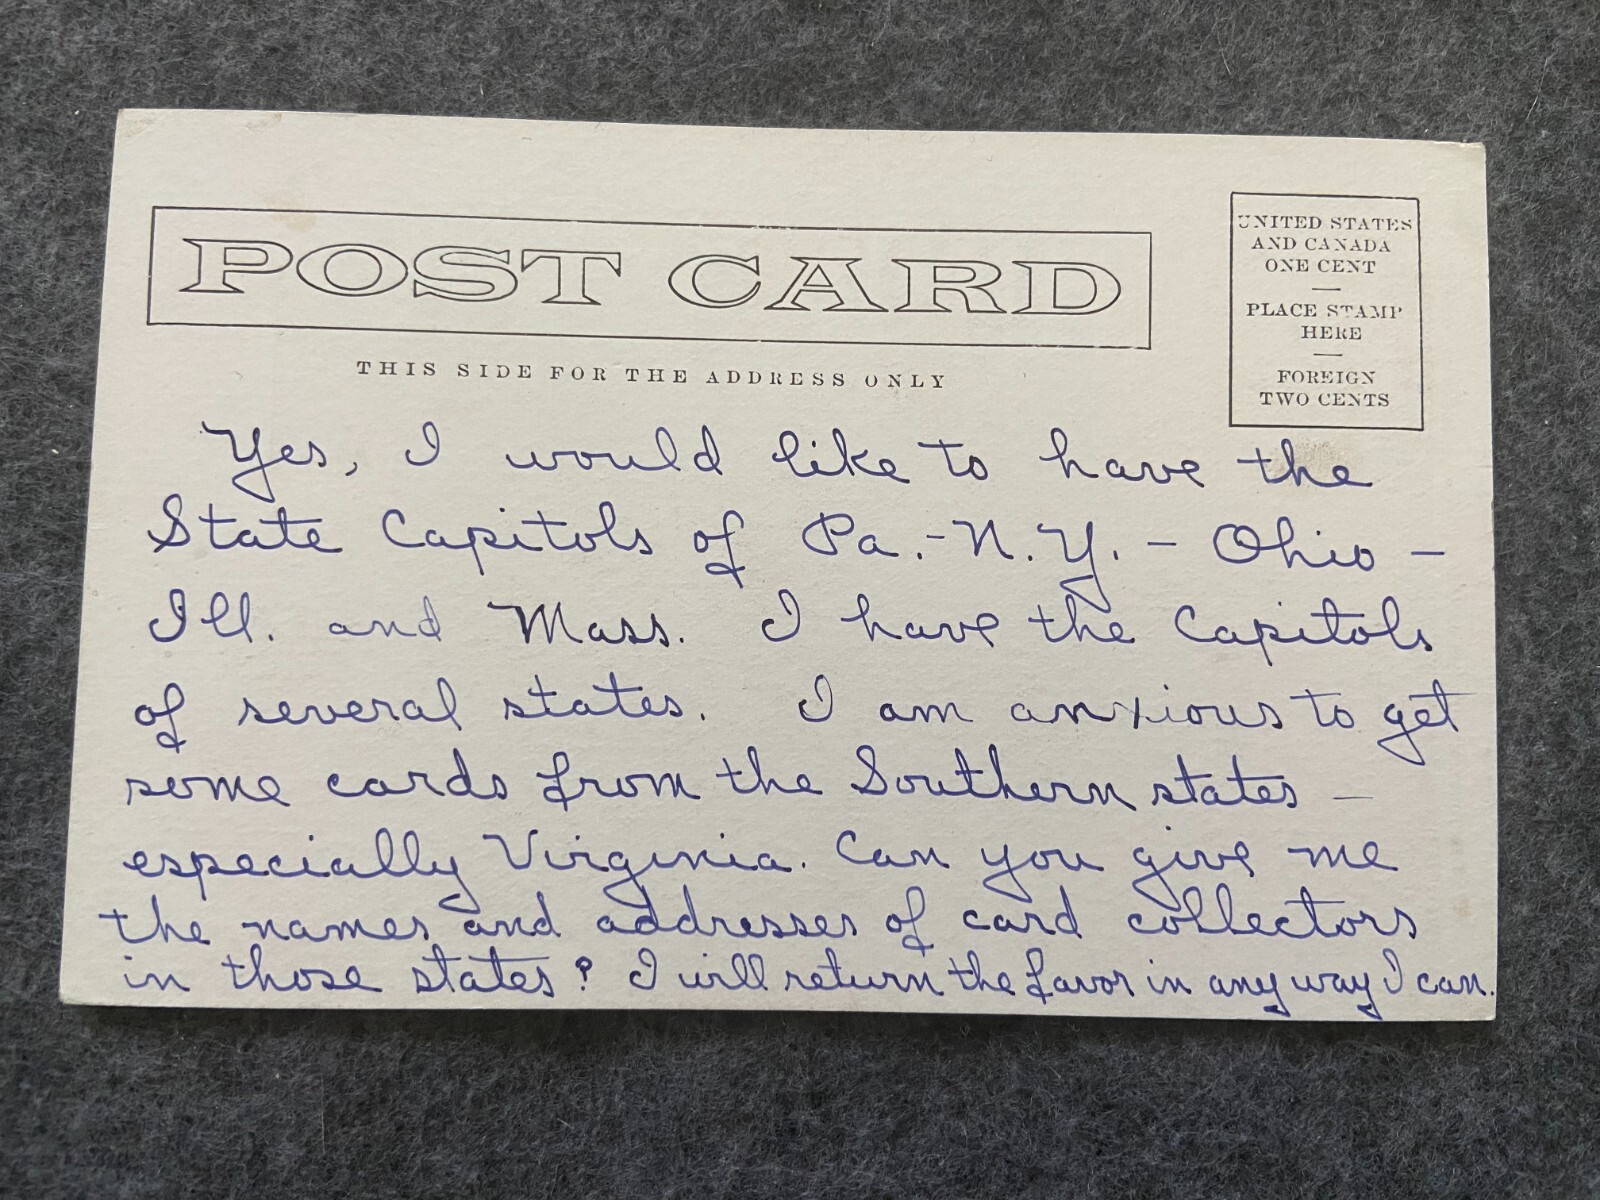 POST CARD
THIS SIDE FOR THE ADDRESS ONLY
UNITED STATES
AND CANADA
ONE CENT
PLACE STAMP
HERE
FOREIGN
TWO CENTS
Yes, I would like to have the
State Capitols of Pa.-N.Y. - Ohio -
Ill. and Mass. I have the Capitols
of several states. I am anxious to get
some cards from the Southern states -
especially Virginia. Can you give me
the names and addresses of card collectors
in those states? I will return the favor in any way I can.